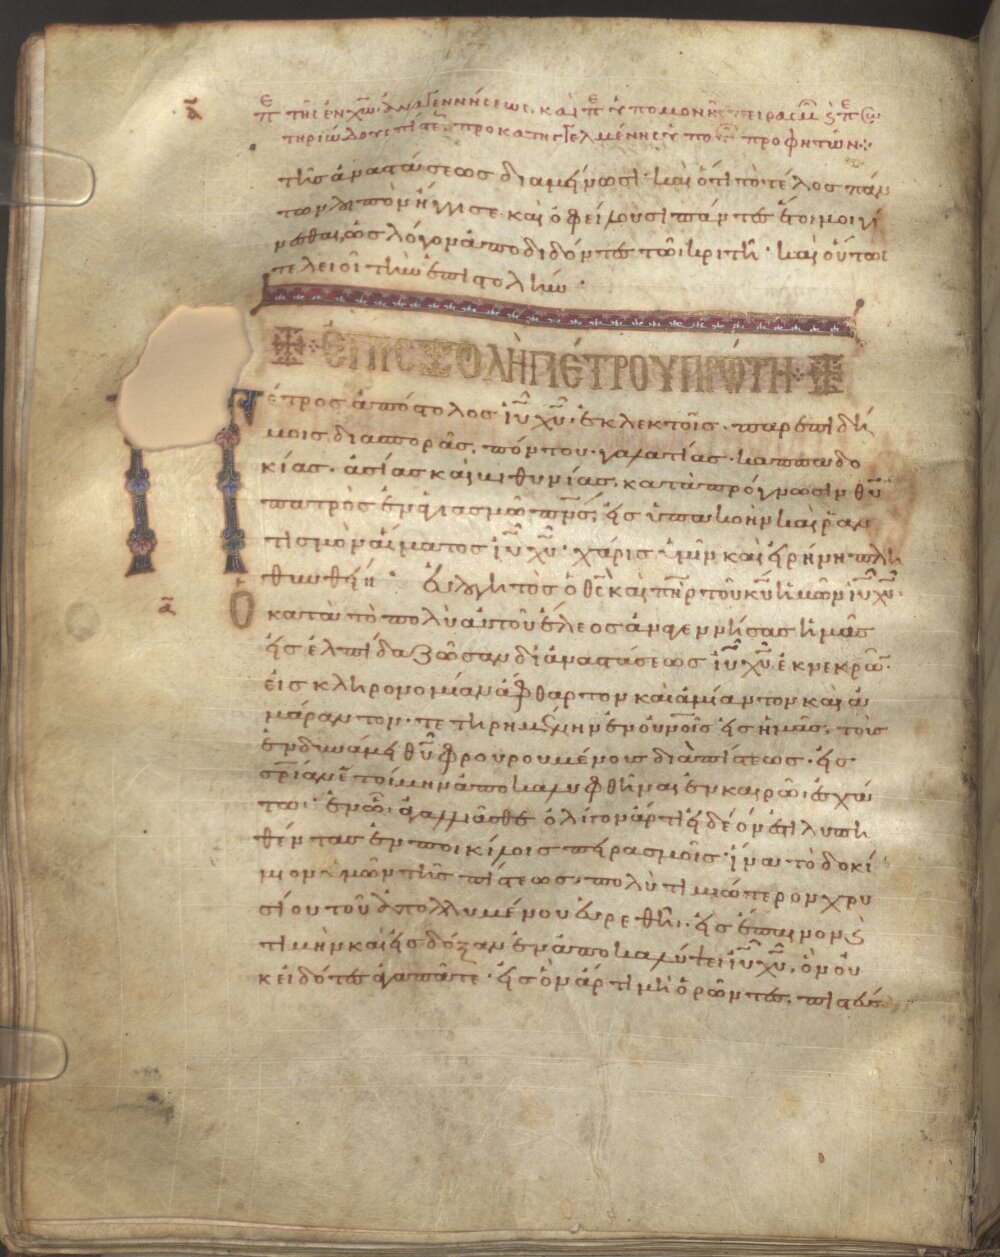 α
πε τῆς ἐν χω ἀναγεννήσεως καὶ πε ὑπομονῆς πειρασμ πε σω
τηριώδους πίστε προκατηγγελμένης ὑπὸ προφητῶν
τῆς ἀναστάσεως διαμένωσι· καὶ ὅτι τὸ τέλος πάν
των λοιπὸν ἤγγισε καὶ ὀφείλουσι πάντες ἕτοιμοι γί
νεσθαι, ὡς λόγον ἀποδιδόντες τῶι κριτῆ· καὶ οὕτως
τελειοῖ τὴν ἐπιστολήν·
ἘΠΙΣΤΟΛῊ ΠΈΤΡΟΥ ΠΡΏΤΗ
Πέτρος ἀπόστολος ἰυ χυ· ἐκλεκτοῖς· παρεπιδή
μοις διασπορᾶς, πόντου· γαλατίας· καππαδο
κίας· ἀσίας καὶ βιθυνίας, κατὰ πρόγνωσιν θυ
πατρὸς ἐν ἁγιασμῶ πνς, εἰς ὑπακοὴν καὶ ῥαν
τισμὸν αἵματος ἰυ χυ· χάρις ὑμῖν καὶ εἰρήνη πλη
θυνθείη· Εὐλογητὸς ὁ θς καὶ πηρ τοῦ κυ ἡμῶν ἰυ χυ·
α ὁ κατὰ τὸ πολὺ αὐτοῦ ἔλεος ἀναγεννήσας ἡμᾶς
εἰς ἐλπίδα ζῶσαν δι ἀναστάσεως ἰυ χυ ἐκ νεκρῶ·
εἰς κληρονομίαν ἄφθαρτον καὶ ἀμίαντον καὶ ἀ
μάραντον· τετηρημένην ἐν οὐνοῖς εἰς ἡμᾶς, τοὺς
ἐν δυνάμει θυ φρουρουμένους διὰ πίστεως· εἰς
σρίαν ἑτοίμην ἀποκαλυφθῆναι ἐν καιρῶ ἐσχά
τω· ἐν ᾧ ἀγαλλιᾶσθε ὀλίγον ἄρτι εἰ δέον ἐστὶ λυπη
θέντας ἐν ποικίλοις πειρασμοῖς· ἵνα τὸ δοκί
μιον ὑμῶν τῆς πίστεως, πολὺ τιμιώτερον χρυ
σίου τοῦ ἀπολλυμένου εὑρεθῆ, εἰς ἔπαινον ϗ
τιμὴν καὶ εἰς δόξαν ἐν ἀποκαλύψει ἰυ χυ, ὃν οὐ
κ εἰδότες ἀγαπᾶτε· εἰς ὃν ἄρτι μὴ ὁρῶντες, πιστεύ